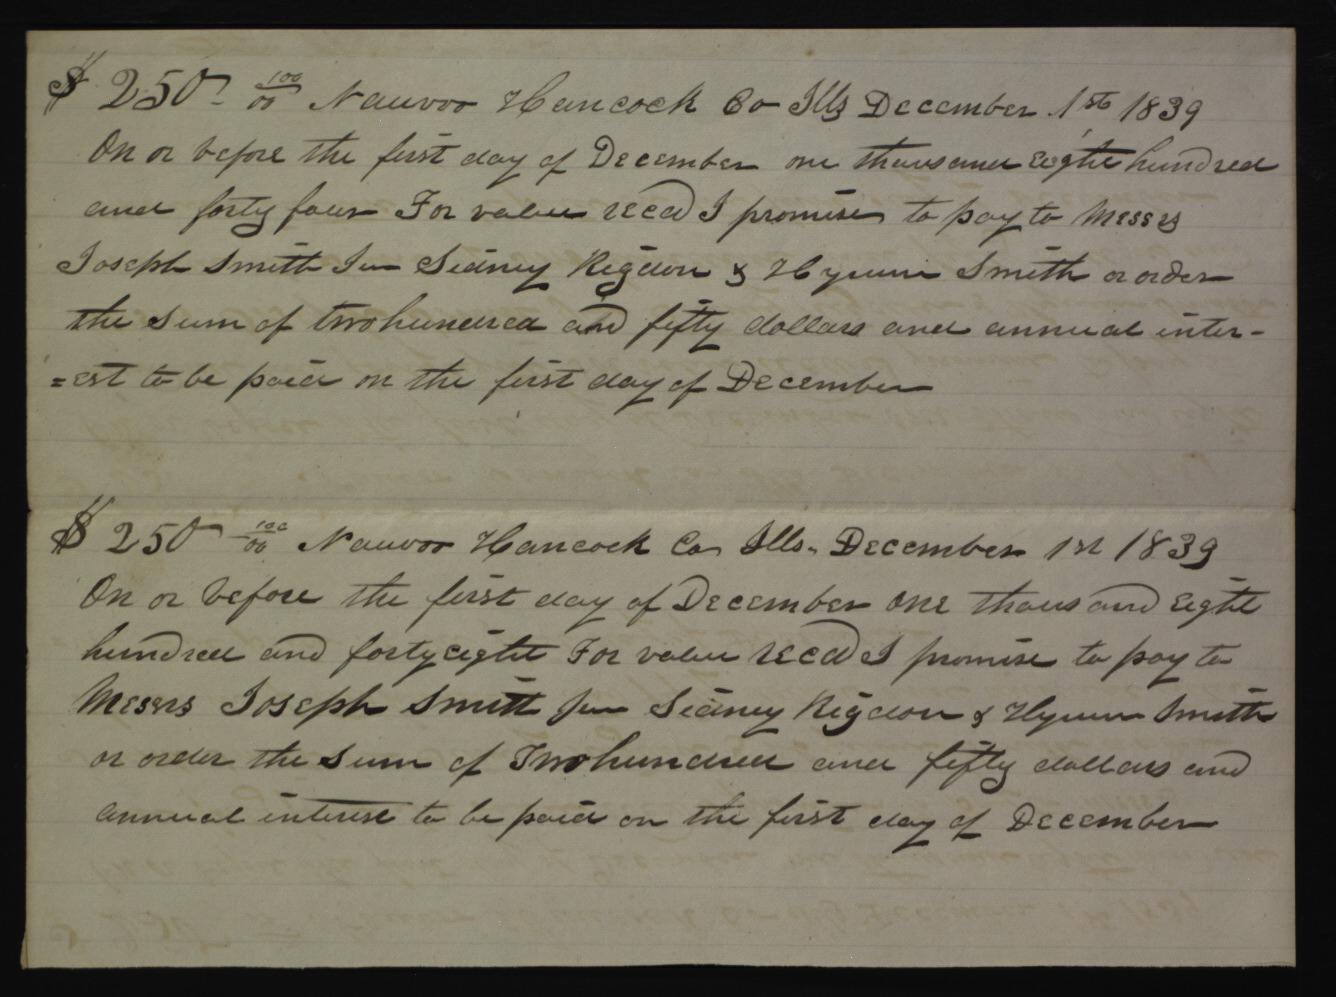 $250- 100/00 Nauvoo Hancock Co Ills December 1st 1839
On or before the first day of December one thousand eight hundred
and forty four For value recd I promise to pay to Messrs
Joseph Smith Jun Sidney Rigdon & Hyrum Smith or order
the sum of two hundred and fifty dollars and annual inter-
=est to be paid on the first day of December
$250 - 100/00 Nauvoo Hancock Co Ills. December 1st 1839
On or before the first day of December one thousand eight
hundred and forty eight For value recd I promise to pay to
Messrs Joseph Smith Jun Sidney Rigdon & Hyrum Smith
or order the sum of Two hundred and fifty dollars and
annual interest to be paid on the first day of December